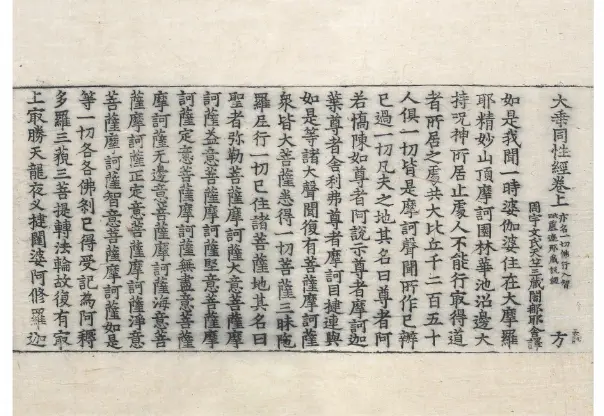 大乗同性經卷上 亦名一切佛行入智
毗盧遮那藏說經
周宇文氏天竺三藏闍那耶舍譯 方
如是我聞一時婆伽婆住在大摩羅
耶精妙山頂摩訶園林華池沼邊大
持呪神所居止處人不能行取得道
者所居之處共大比丘千二百五十
人俱一切皆是摩訶聲聞所作已辦
已過一切凡夫之地其名曰尊者阿
若憍陳如尊者阿說示尊者摩訶迦
葉尊者舍利弗尊者摩訶目揵連與
如是等諸大聲聞復有菩薩摩訶薩
衆皆大菩薩悉得一切菩薩三昧陁
羅尼行一切已住諸菩薩地其名曰
聖者弥勒菩薩摩訶薩大意菩薩摩
訶薩益意菩薩摩訶薩堅意菩薩摩
訶薩定意菩薩摩訶薩無盡意菩薩
摩訶薩无邊意菩薩摩訶薩海意菩
薩摩訶薩正定意菩薩摩訶薩淨意
菩薩摩訶薩智意菩薩摩訶薩如是
等一切各各佛刹已得受記為阿耨
多羅三藐三菩提轉法輪故復有㝡
上㝡勝天龍夜叉揵闥婆阿修羅迦